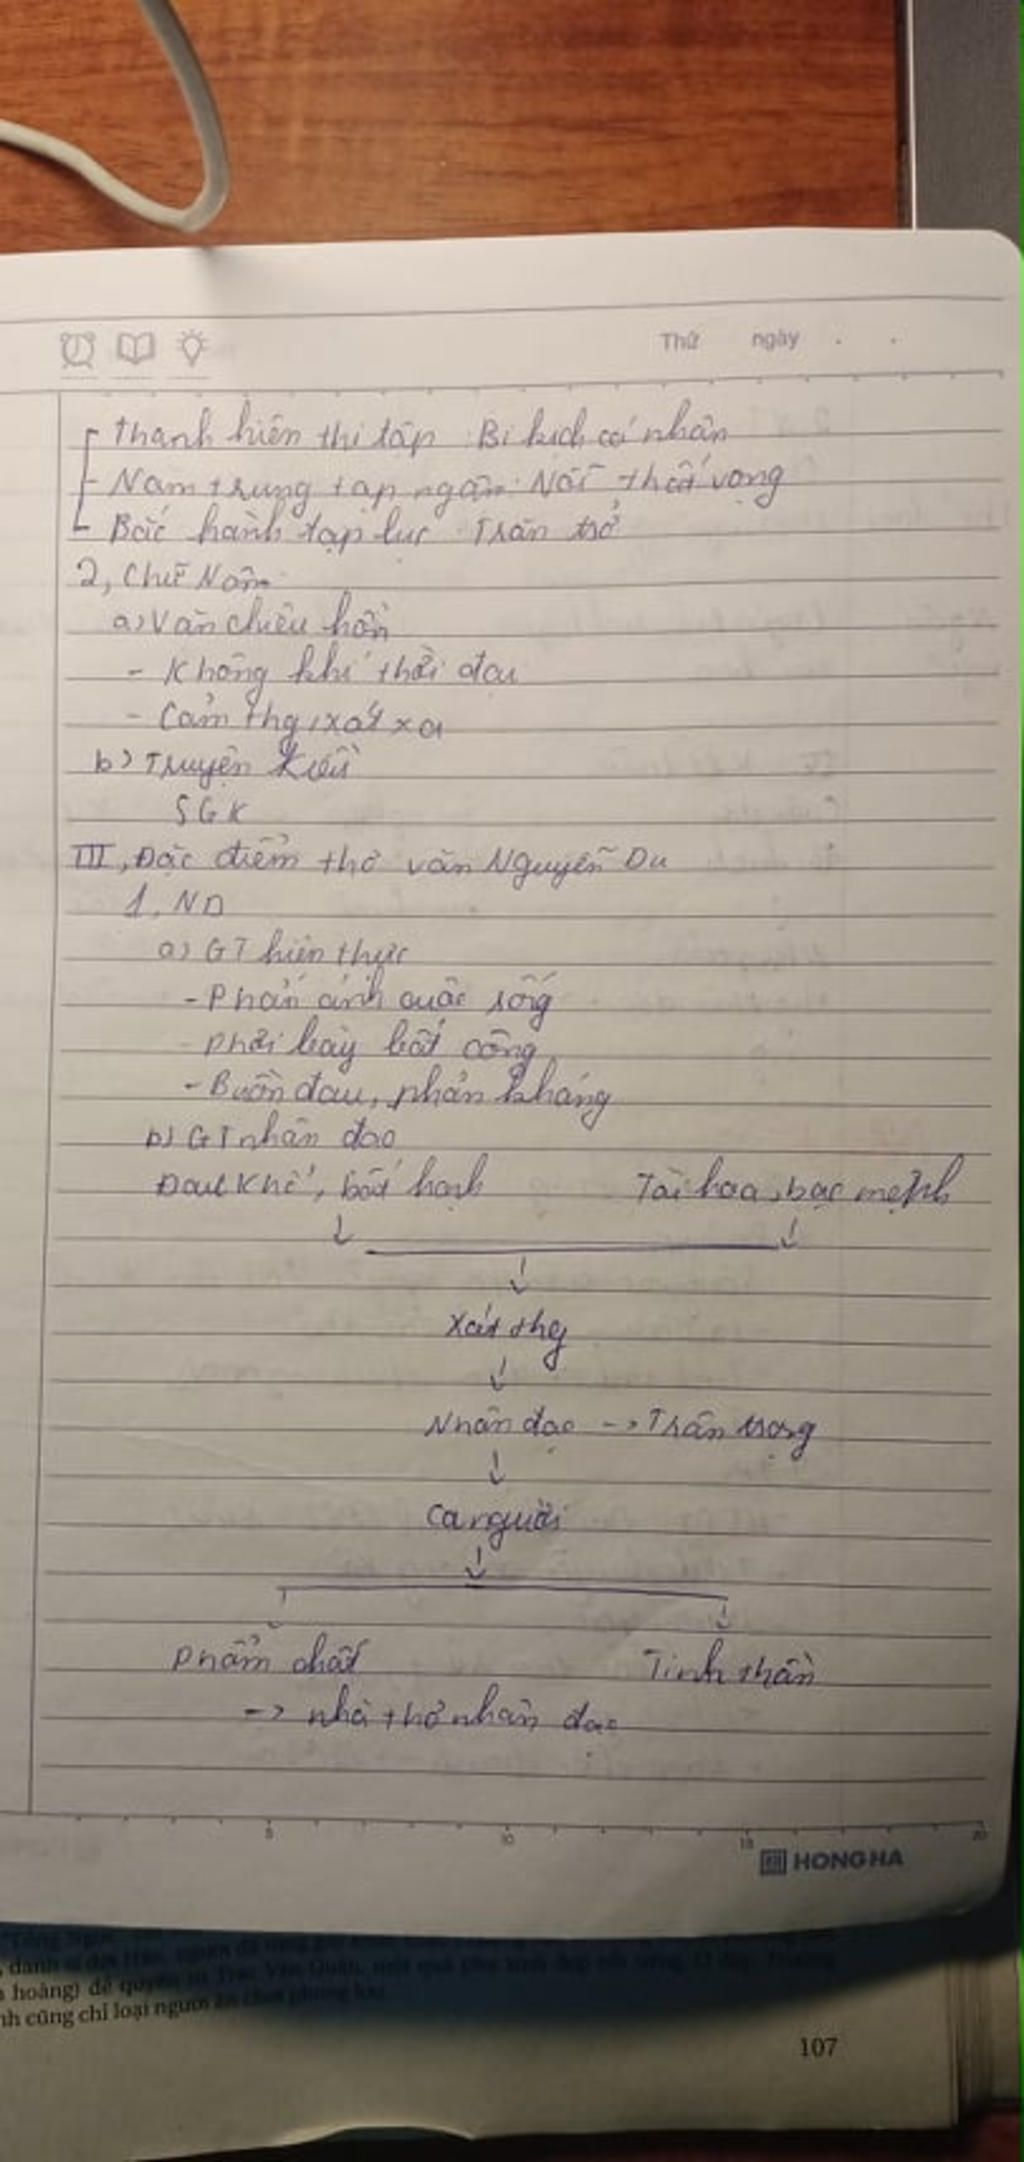 Thứ ngày . .
Thanh hiên thi tập : Bi kịch cá nhân
- Nam trung tạp ngâm: Nỗi thất vọng
- Bắc hành tạp lục : Trăn trở
2, Chữ Nôm
a) Văn chiêu hồn
- Không khí thời đại
- Cảm thg, xót xa
b) Truyện Kiều
SGK
III, Đặc điểm thơ văn Nguyễn Du
1, ND
a) GT hiện thực
- Phản ánh cuộc sống
- Phơi bày bất công
- Buồn đau, phản kháng
b) GT nhân đạo
Đau khổ, bất hạnh Tài hoa, bạc mệnh
↓ ↓
↓
Xót thg
↓
Nhân đạo -> Trân trọng
↓
Ca người
↓
Phẩm chất Tinh thần
-> nhà thơ nhân đạo
5 10 15 20
HONG HA
hoàng) để
nh cũng chỉ loại người
107